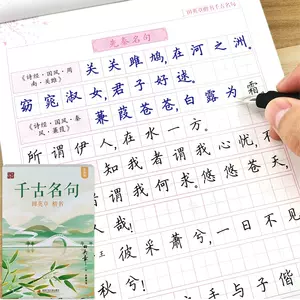 先秦名句
《诗经·国风·周南·关雎》
关关雎鸠,在河之洲。
窈窕淑女,君子好逑。
《诗经·国风·秦风·蒹葭》
蒹葭苍苍,白露为霜
所谓伊人,在水一方。
知我者谓我心忧,不
知我者谓我何求。悠悠苍天,
人哉!
彼采萧兮,一日不
兮!
手与子偕
千古名句
楷书